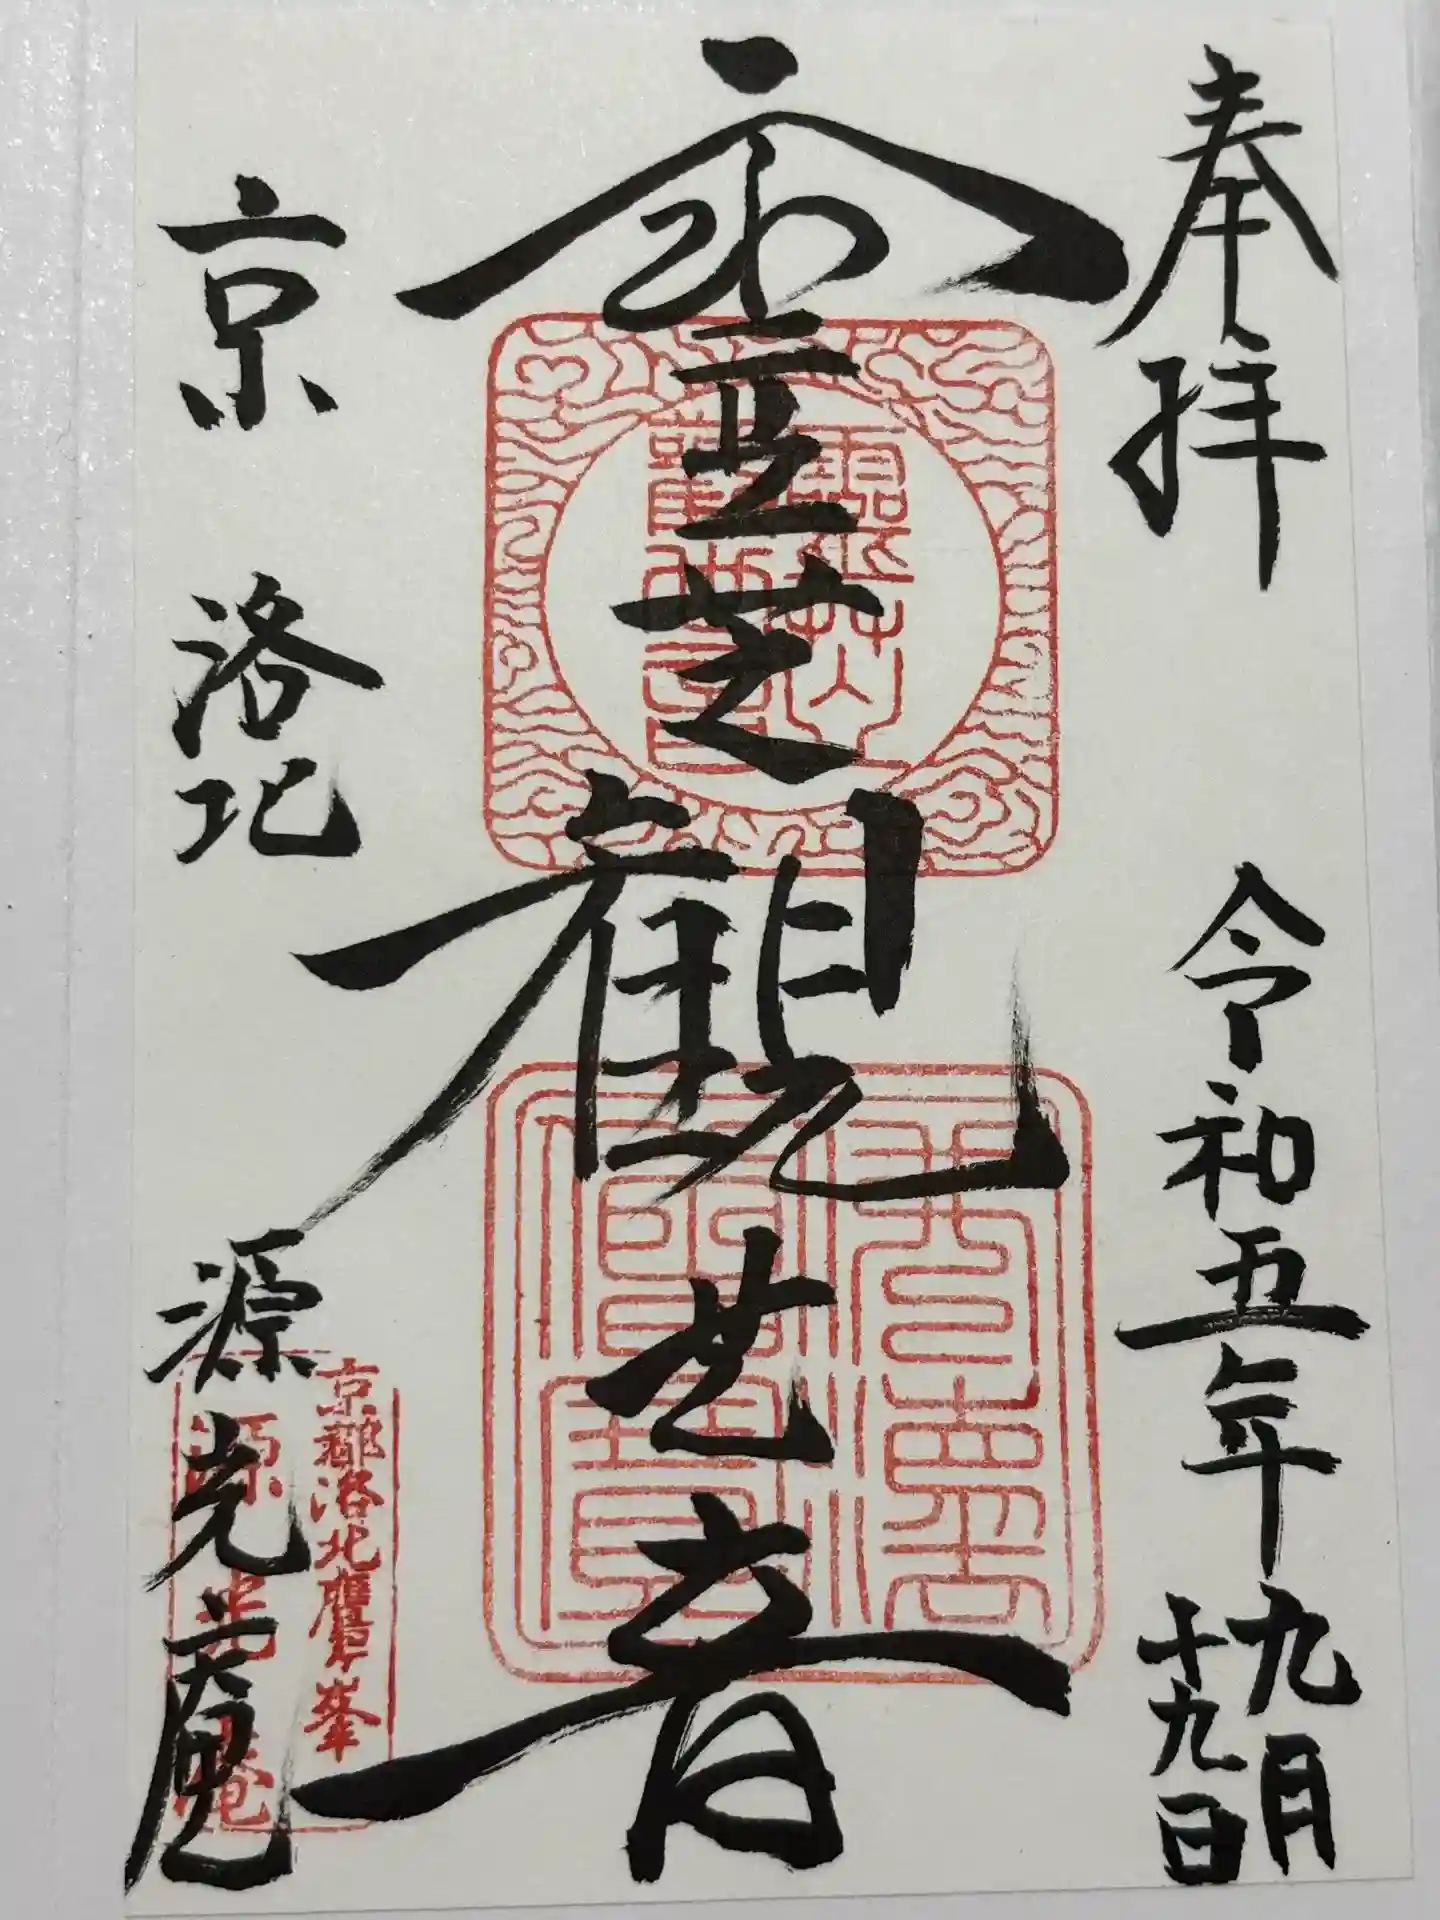 奉拝
令和五年九月
十九日
霊芝観世音
京 洛北
源光庵
京都洛北鷹峯
源光庵